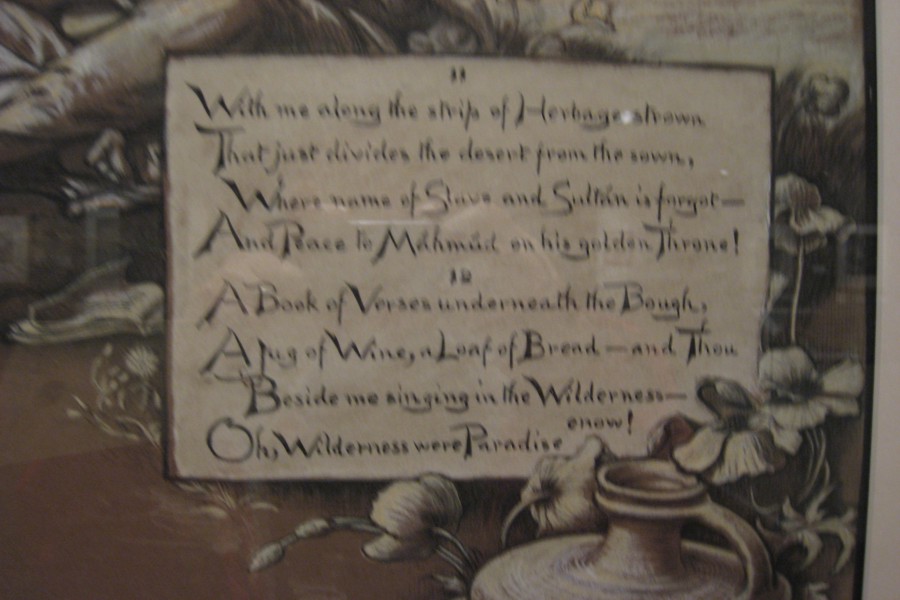 11
With me along the strip of Herbage strown
That just divides the desert from the sown,
Where name of Slave and Sultán is forgot—
And Peace to Máhmúd on his golden Throne!
12
A Book of Verses underneath the Bough,
A Jug of Wine, a Loaf of Bread—and Thou
Beside me singing in the Wilderness—
Oh, Wilderness were Paradise enow!